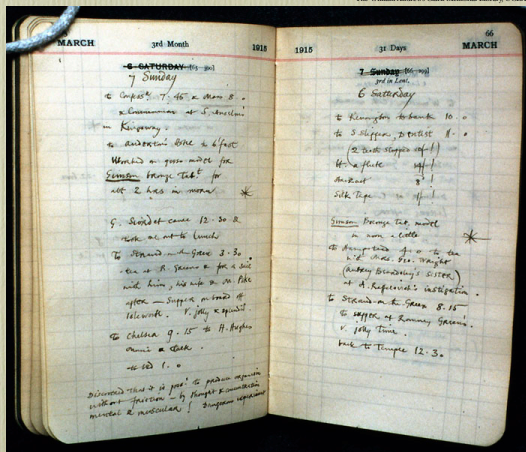 MARCH 3rd Month 1915
6 SATURDAY [65-300]
7 Sunday
to Confess. 7.45 & Mass 8.0
& Communion at S. Anselm
in Kingsway.
to breakfast
Worked on model for
Simson bronze Tabt for
abt 2 hrs in morn
G. came 12.30 &
took me out to lunch
To Strand-on-the Green 3.30
tea at R. Green's & for a sail
with him, his wife & M. Pike
after — Supper on board of
v. jolly & splendid.
to Chelsea 9.15 to H. Hughes
music & talk.
to bed 1.0
Discovered that it is poss. to produce
without friction — by thought & concentration
mental & muscular! Dangerous experiment
66
1915 31 Days MARCH
7 Sunday [66-299]
3rd in Lent.
6 Saturday
to Kennington to bank 10.0
to S. Slipper, Dentist 11.0
(2 teeth stopped
a flute
Silk Tape
Simson Bronze Tab. model
in morn a little
to Hampstead 4.0 to tea
with Mrs. Geo. Wright
(Aubrey Beardsley's SISTER)
at A. Raffalovich's instigation.
to Strand-on-the Green 8.15
to supper at Romney Green's.
v. jolly time
back to Temple 12.30